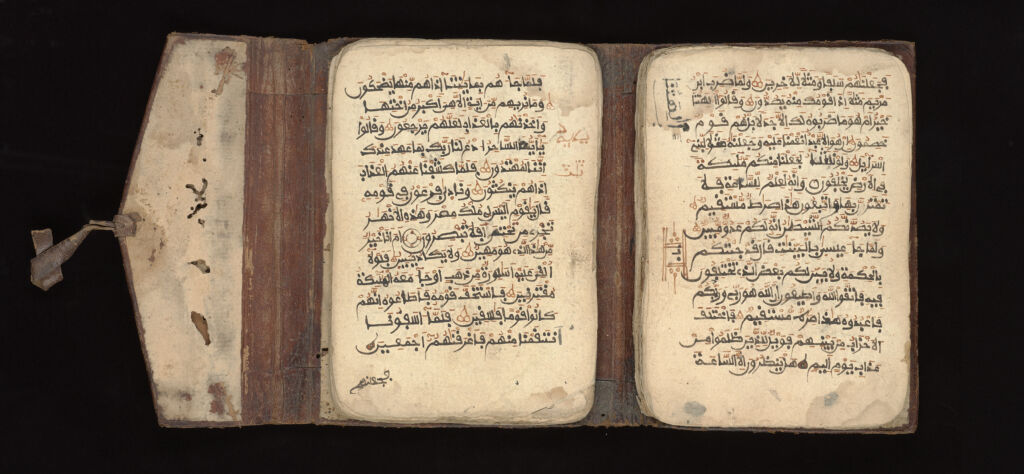 فلما جاءهم بايتنا اذا هم منها يضحكون
وما نريهم من اية الا هي اكبر من اختها
واخذنهم بالعذاب لعلهم يرجعون وقالوا
يايه الساحر ادع لنا ربك بما عهد عندك
اننا لمهتدون فلما كشفنا عنهم العذاب
اذا هم ينكثون ونادى فرعون في قومه
قال يقوم اليس لي ملك مصر وهذه الانهر
تجري من تحتي افلا تبصرون ام انا خير
من هذا الذي هو مهين ولا يكاد يبين فلولا
القي عليه اسورة من ذهب او جاء معه الملئكة
مقترنين فاستخف قومه فاطاعوه انهم
كانوا قوما فسقين فلما اسفونا
انتقمنا منهم فاغرقنهم اجمعين
فجعلنهم
فجعلنهم سلفا ومثلا للاخرين ولما ضرب ابن
مريم مثلا اذا قومك منه يصدون وقالوا ءالهتنا
خير ام هو ما ضربوه لك الا جدلا بل هم قوم
خصمون ان هو الا عبد انعمنا عليه وجعلنه مثلا لبني
اسراءيل ولو نشاء لجعلنا منكم ملئكة
في الارض يخلفون وانه لعلم للساعة فلا
تمترن بها واتبعون هذا صرط مستقيم
ولا يصدنكم الشيطن انه لكم عدو مبين
ولما جاء عيسى بالبينت قال قد جئتكم
بالحكمة ولابين لكم بعض الذي تختلفون
فيه فاتقوا الله واطيعون ان الله هو ربي وربكم
فاعبدوه هذا صرط مستقيم فاختلف
الاحزاب من بينهم فويل للذين ظلموا من
عذاب يوم اليم هل ينظرون الا الساعة